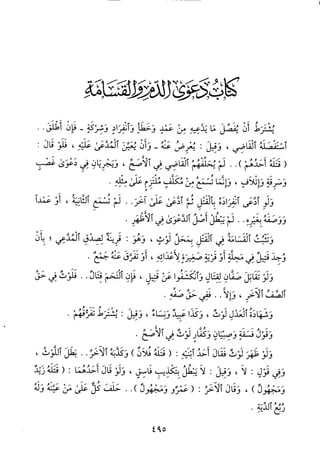 كتاب دعوى الدم والقسامة
يشترط أن يفصل ما يدعيه من عمد وخطأ وأنفراد وشركة - فإن أطلق . .
أستفصله القاضي ، وقيل : يعرض عنه - وأن يعين المدعى عليه ، فلو قال :
( قتله أحدهم ) . . لم يحلفهم القاضي في الأصح ، ويجريان في دعوى غصب
وسرقة وإتلاف ، وإنما تسمع من مكلف ملتزم على مثله .
ولو أدعى أنفراده بالقتل ثم أدعى على آخر . . لم تسمع الثانية ، أو عمداً
ووصفه بغيره . . لم يبطل أصل الدعوى في الأظهر .
وتثبت القسامة في القتل بمحل لوث ، وهو : قرينة لصدق المدعي ؛ بأن
وجد قتيل في محلة أو قرية صغيرة لأعدائه ، أو تفرق عنه جمع .
ولو تقابل صفان لقتال وأنكشفوا عن قتيل ، فإن التحم قتال . . فلوث في حق
الصف الآخر ، وإلا . . ففي حق صفه .
وشهادة العدل لوث ، وكذا عبيد ونساء ، وقيل : يشترط تفرقهم .
وقول فسقة وصبيان وكفار لوث في الأصح .
ولو ظهر لوث فقال أحد أبنيه : ( قتله فلان ) وكذبه الآخر . . بطل اللوث ،
وفي قول : لا ، وقيل : لا يبطل بتكذيب فاسق ، ولو قال أحدهما : ( قتله زيد
ومجهول ) ، وقال الآخر : ( عمرو ومجهول ) . . حلف كل على من عينه وله
ربع الدية .
٤٩٥